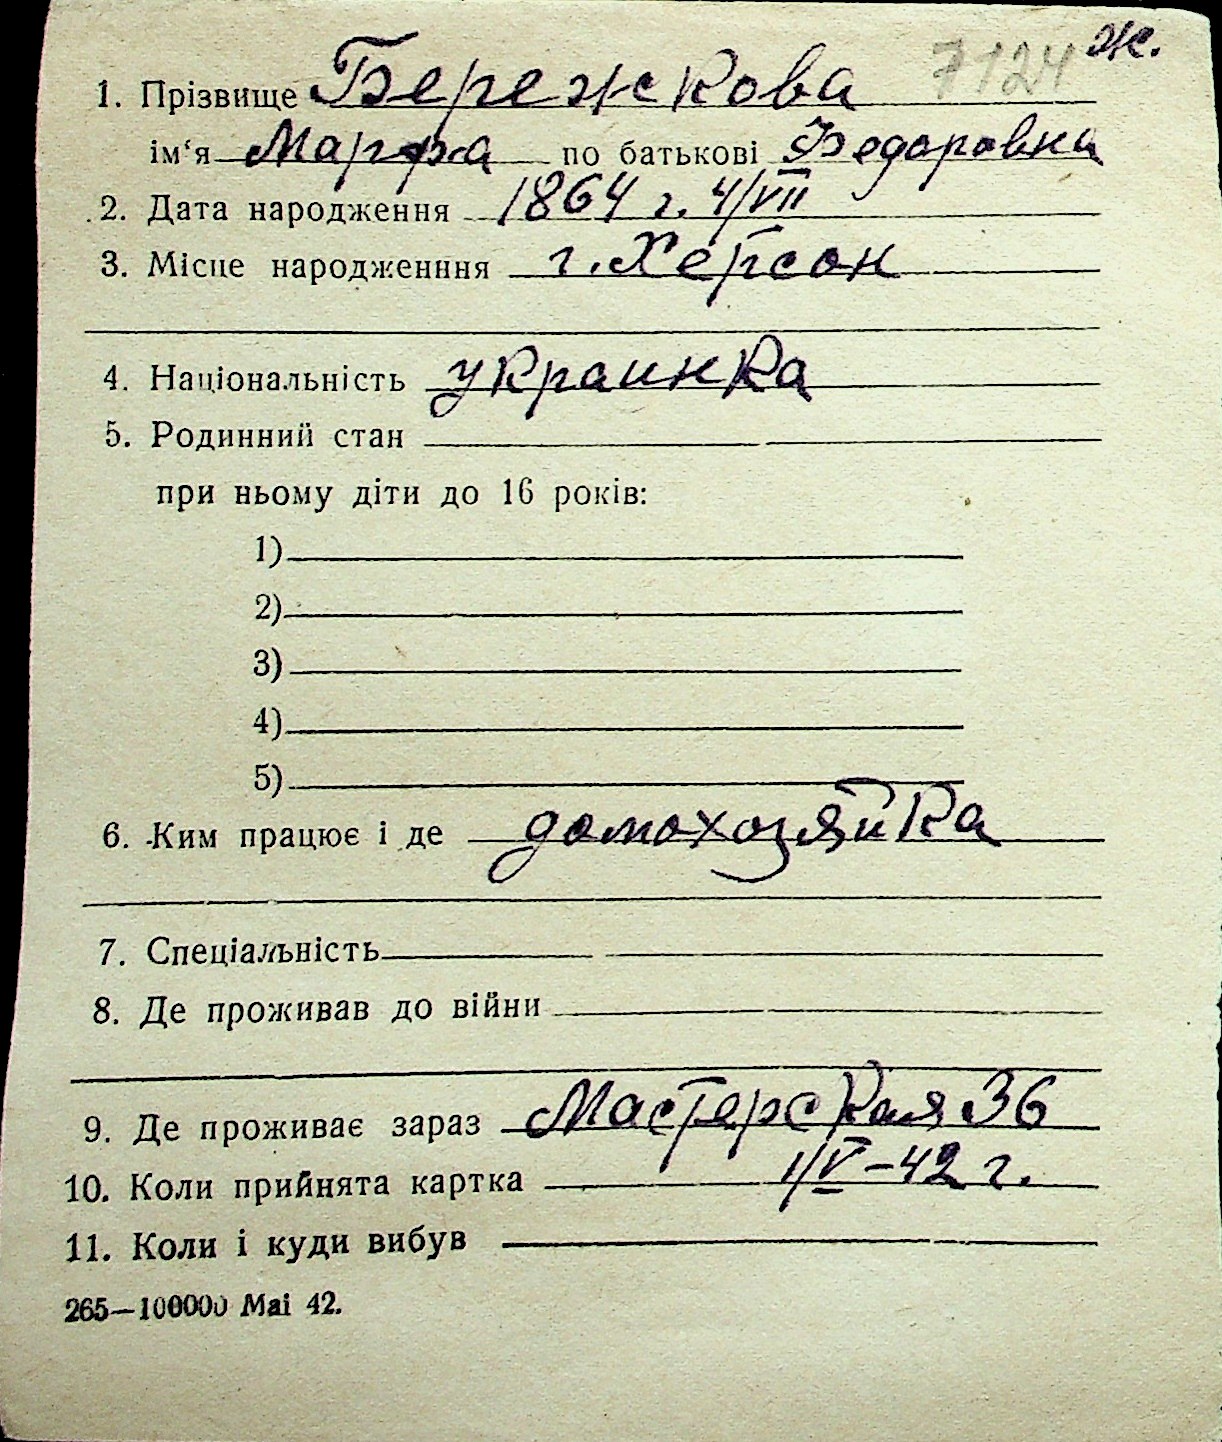 7124 ж.
1. Прізвище Бережкова
ім‘я Марфа по батькові Федоровна
2. Дата народження 1864 г. 4/VII
3. Місце народженння г. Херсон
4. Національність украинка
5. Родинний стан
при ньому діти до 16 років:
1)
2)
3)
4)
5)
6. Ким працює і де домохозяйка
7. Спеціальність
8. Де проживав до війни
9. Де проживає зараз Мастерская 36
10. Коли прийнята картка 1/V-42 г.
11. Коли і куди вибув
265—100000 Mai 42.